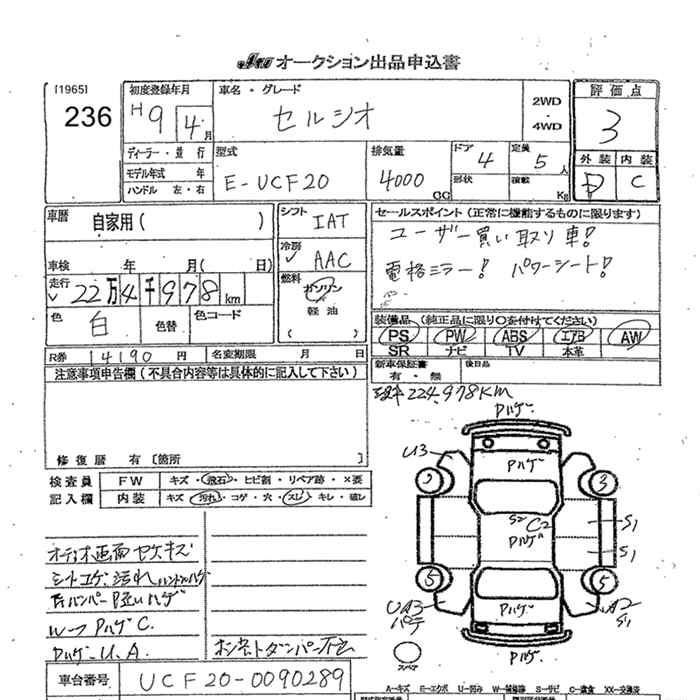 オークション出品申込書
[1965]
236
初度登録年月
H9 4月
車名・グレード
セルシオ
2WD
・
4WD
評価点
3
外装 内装
D C
ディーラー・並行
モデル年式 年
ハンドル 左・右
型式
E-UCF20
排気量
4000
CC
ドア
4
形状
定員
5人
積載
Kg
車歴
自家用( )
シフト
IAT
冷房
AAC
燃料
ガソリン
軽油
( )
車検 年 月( 日)
走行
22万4千978km
色
白
色替
色コード
R券 14190円
名変期限 月 日
セールスポイント(正常に機能するものに限ります)
ユーザー買い取り車!
電格ミラー! パワーシート!
装備品 (純正品に限り○を付けてください)
PS PW ABS エアB AW
SR ナビ TV 本革
新車保証書
有・無
後日品
注意事項申告欄(不具合内容等は具体的に記入して下さい)
修復歴 有〔箇所 〕
検査員
記入欄
FW キズ・飛石・ヒビ割・リペア跡・X要
内装 キズ・汚れ・コゲ・穴・スレ・キレ・破レ
224,978KM
Pハゲ
U3
Pハゲ
3
S2
C2
Pハゲ
S1
S1
5
5
UA3
パテ
Pハゲ
UA2
S1
スペア
Pハゲ
シートコゲ、汚れ
ハンドルハゲ
WーフPハゲC.
PハゲーU.A
車台番号
UCF20-0090289
A-キズ E-エクボ U-凹み W-補修跡 S-サビ C-腐食 XX-交換済